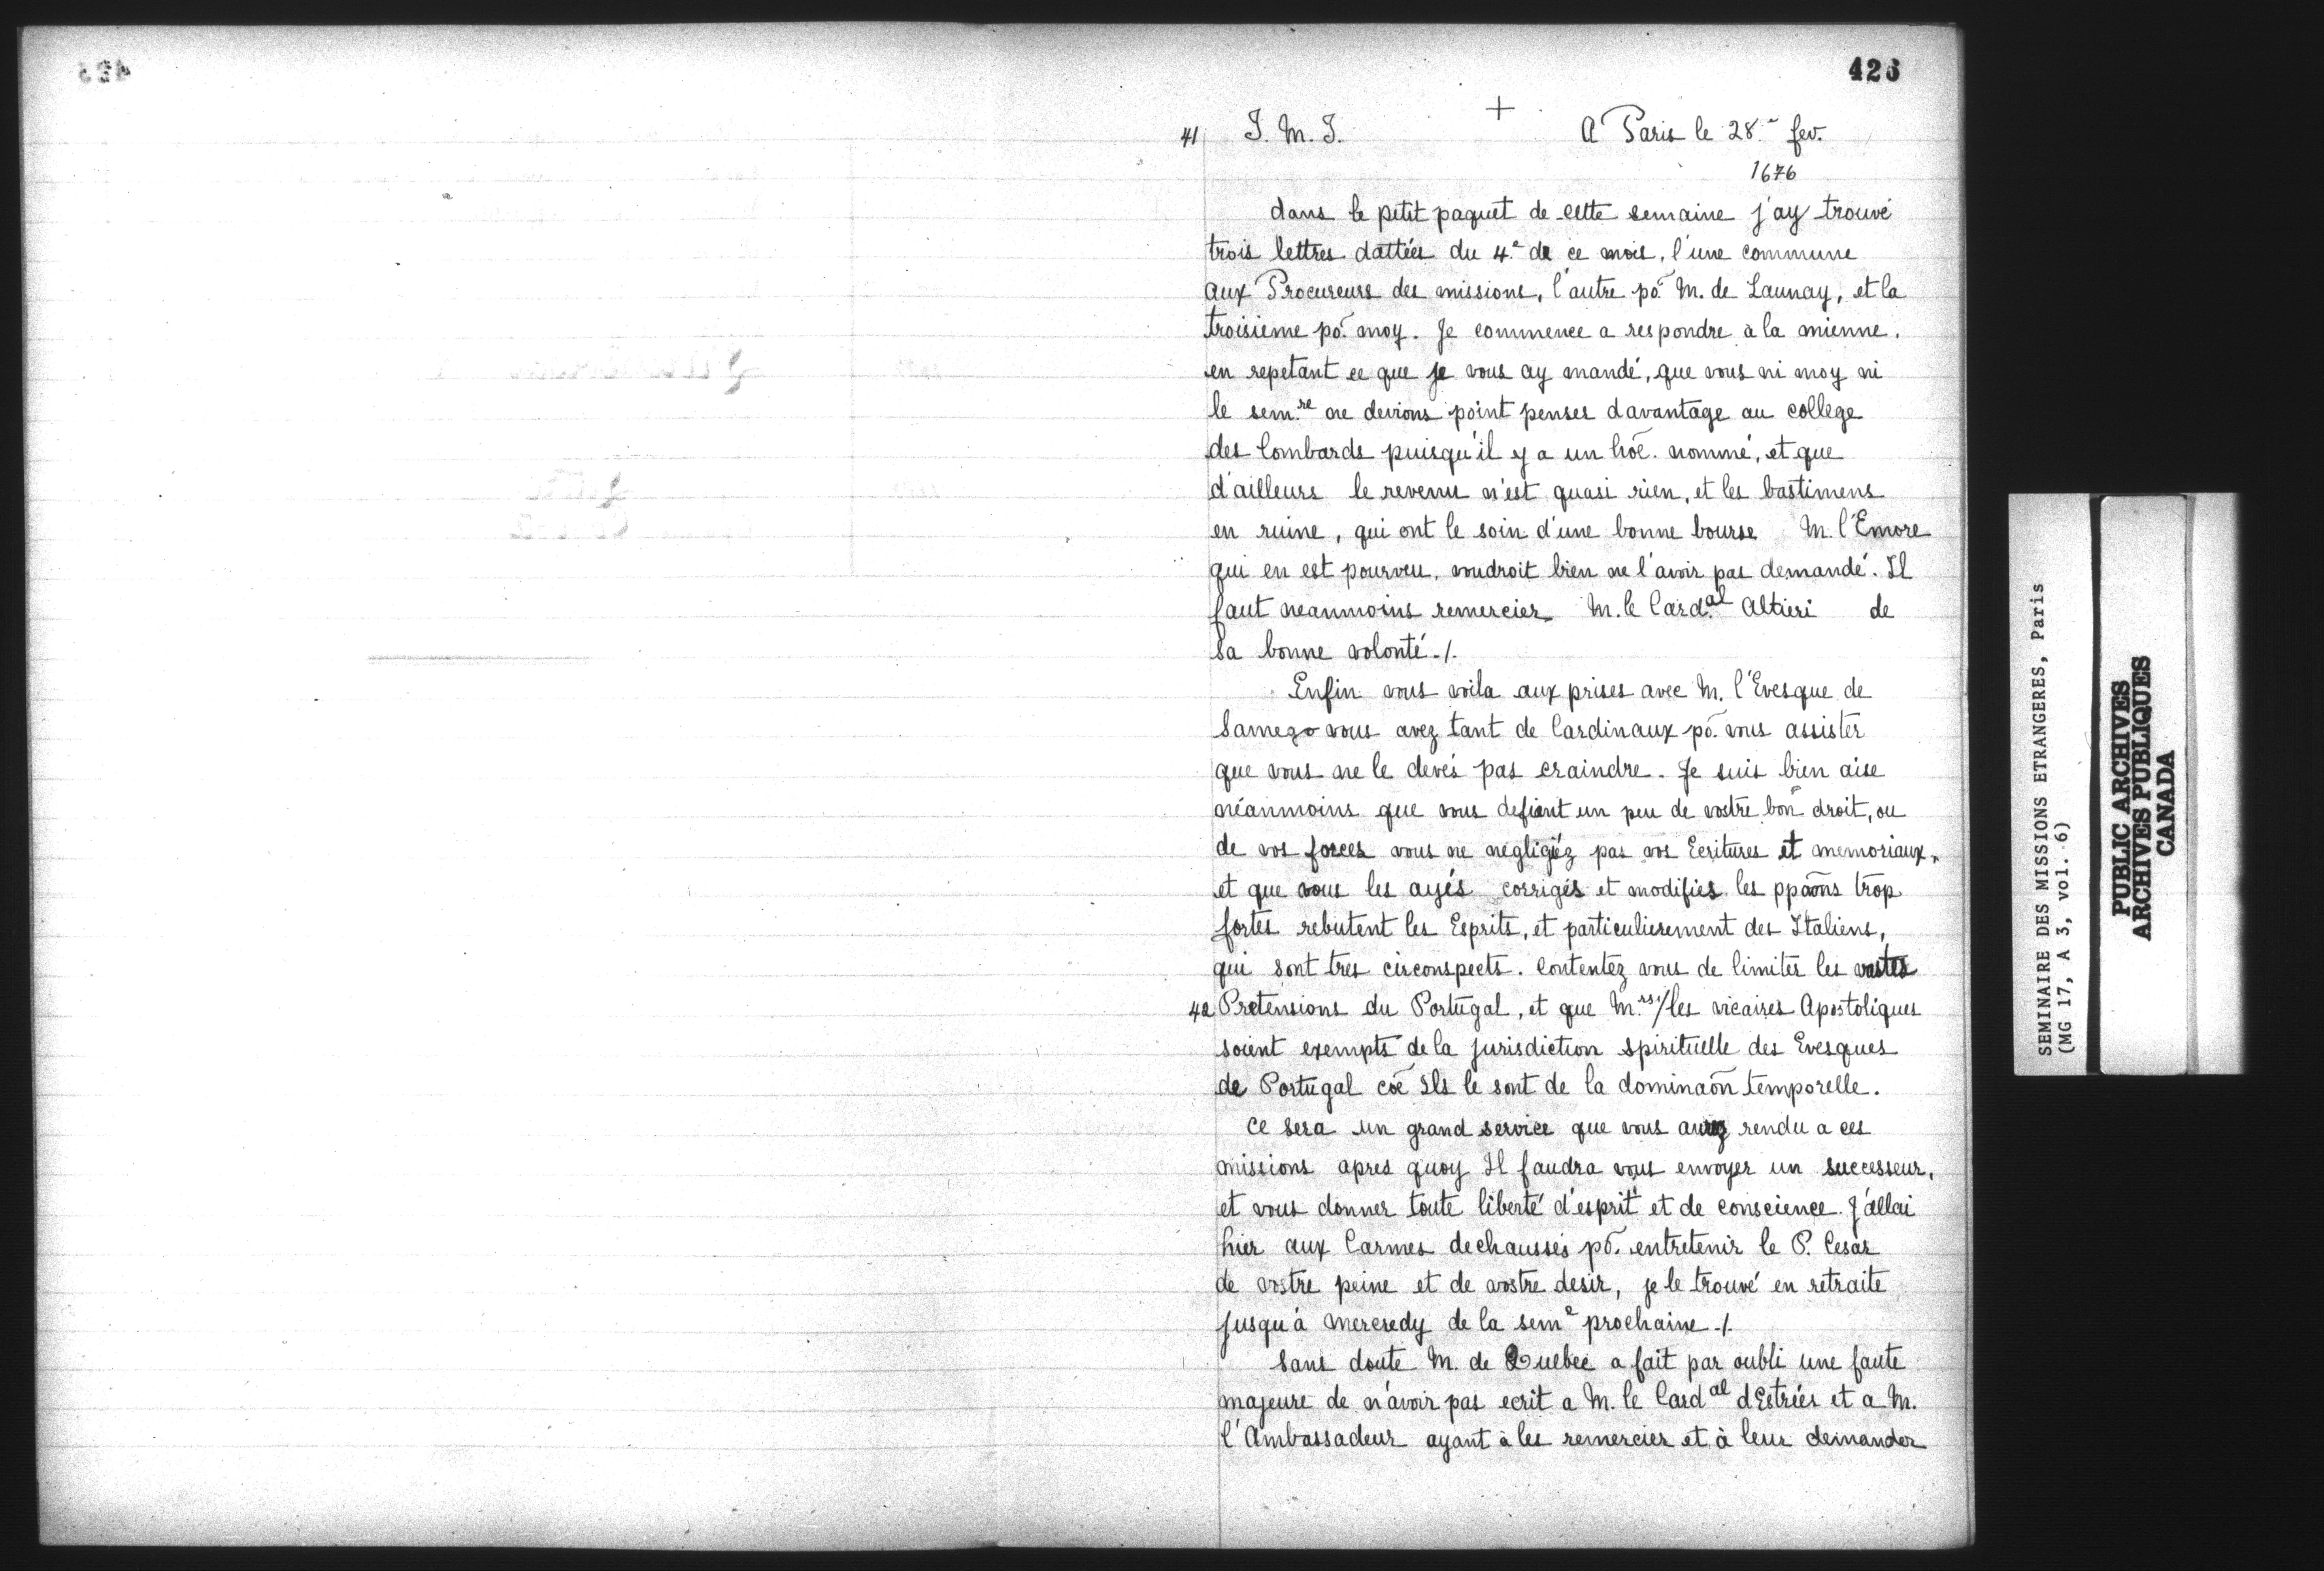 426
+
41 J. M. J. A Paris le 28.e fev.
1676
dans le petit paquet de cette semaine j'ay trouvé
trois lettres dattées du 4.e de ce mois, l'une commune
aux Procureurs des missions, l'autre põ. M. de Launay, et la
troisieme põ. moy. Je commence a respondre à la mienne.
en repetant ce que je vous ay mandé, que vous ni moy ni
le sem.re ne devions point penser davantage au college
des Lombards puisqu'il y a un hõe. nommé, et que
d'ailleurs le revenu n'est quasi rien, et les bastimens
en ruine, qui ont le soin d'une bonne bourse M. l'Emore
qui en est pourveu, voudroit bien ne l'avoir pas demandé. Il
faut neanmoins remercier M. le Card.al Altieri de
Sa bonne volonté./.
Enfin vous voila aux prises avec M. l'Evesque de
Samego vous avez tant de Cardinaux põ. vous assister
que vous ne le devés pas craindre. Je suis bien aise
néanmoins que vous defiant un peu de vostre bon droit, ou
de vos forces vous ne negligiéz pas vos Ecritures et memoriaux,
et que vous les ayés corrigés et modifiés les ppaõns trop
fortes rebutent les Esprits, et particulierement des Italiens,
qui sont tres circonspects. Contentez vous de limiter les vastes
42 Pretensions du Portugal, et que M.rs/les vicaires Apostoliques
soient exempts de la jurisdiction spirituelle des Evesques
de Portugal cõe Ils le sont de la dominaõn temporelle.
Ce sera un grand service que vous aurez rendu a ces
missions apres quoy Il faudra vous envoyer un successeur,
et vous donner toute liberté d'esprit et de conscience. J'allai
hier aux Carmes dechaussés põ. entretenir le P. Cesar
de vostre peine et de vostre desir, je le trouvé en retraite
jusqu'à mercredy de la sem.e prochaine./.
Sans doute M. de Quebec a fait par oubli une faute
majeure de n'avoir pas ecrit a M. le Card.al d'Estrées et a M.
l'Ambassadeur ayant à les remercier et à leur demander
SEMINAIRE DES MISSIONS ETRANGERES, Paris
(MG 17, A 3, vol. 6)
PUBLIC ARCHIVES
ARCHIVES PUBLIQUES
CANADA